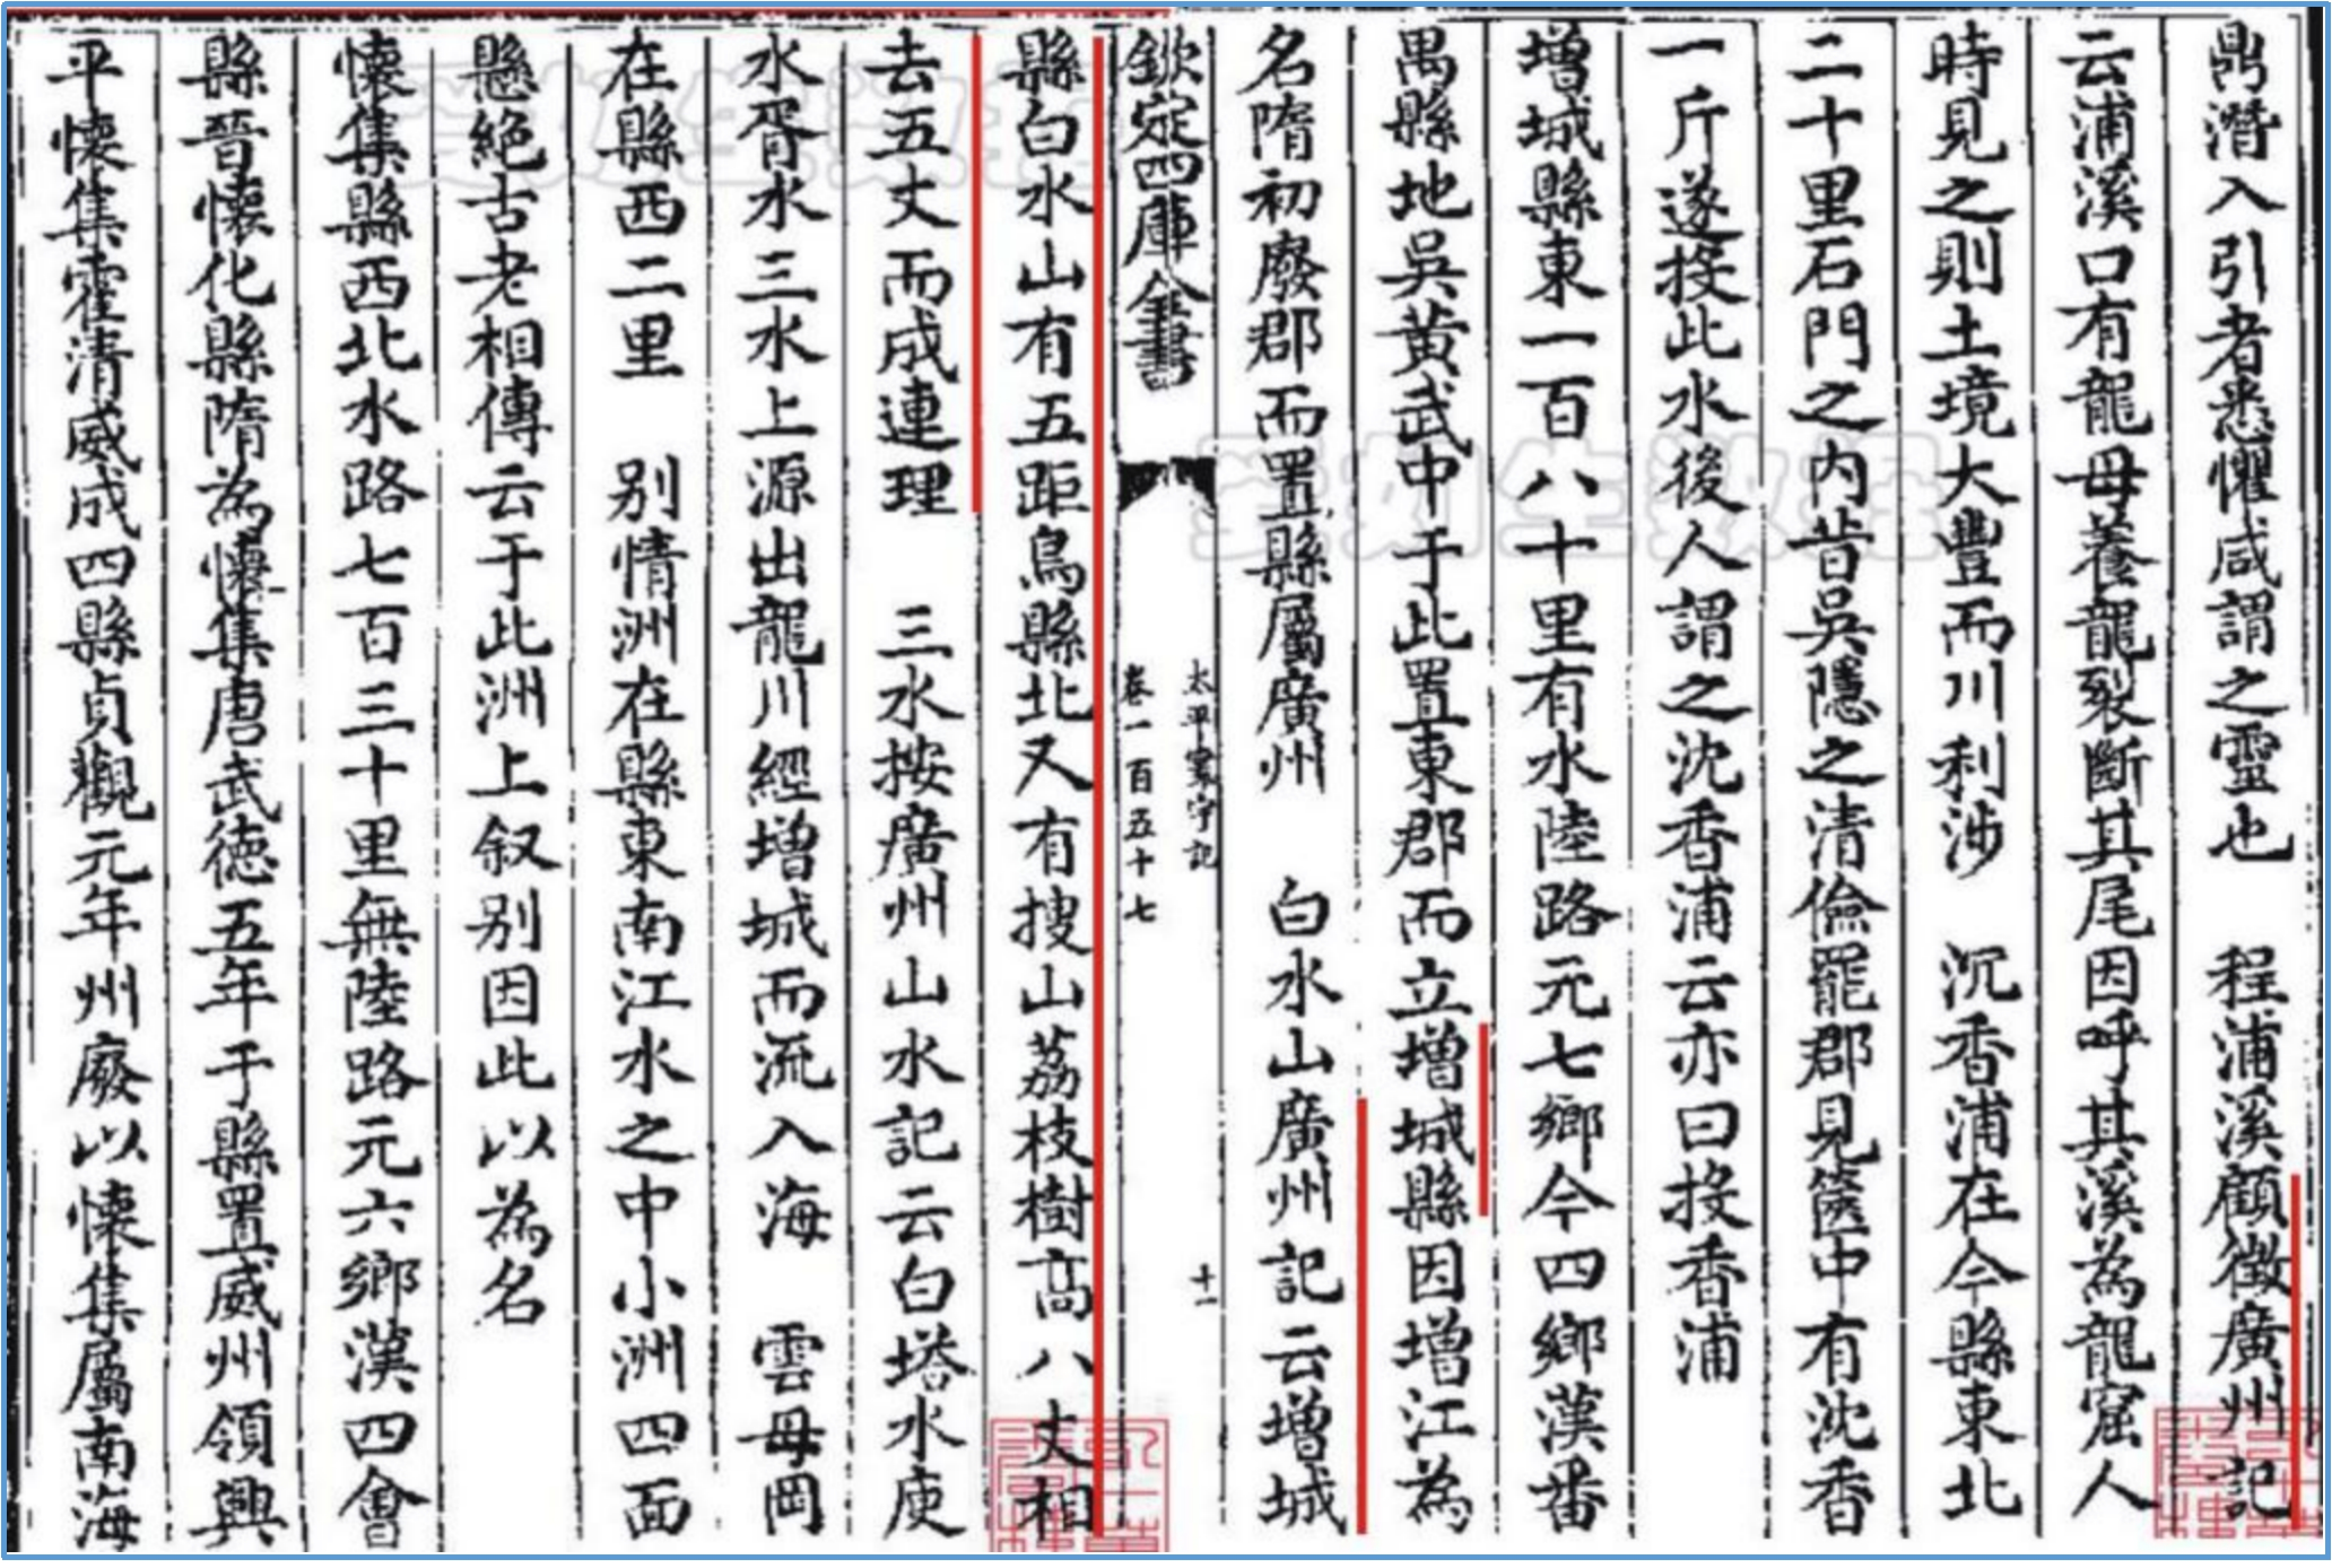 鼎潛入引者悉懼咸謂之靈也　程浦溪顧微廣州記
云浦溪口有龍母養龍裂斷其尾因呼其溪為龍窟人
時見之則土境大豐而川利涉　沉香浦在今縣東北
二十里石門之内昔吳隱之清儉罷郡見篋中有沈香
一斤遂投此水後人謂之沈香浦云亦曰投香浦
增城縣東一百八十里有水陸路元七鄉今四鄉漢番
禺縣地吳黃武中于此置東郡而立增城縣因增江為
名隋初廢郡而置縣屬廣州　白水山廣州記云增城
欽定四庫全書
太平寰宇記
卷一百五十七
十一
縣白水山有五距鳥縣北又有搜山荔枝樹高八丈相
去五丈而成連理　三水按廣州山水記云白塔水庾
水胥水三水上源出龍川經增城而流入海　雲母岡
在縣西二里　别情洲在縣東南江水之中小洲四面
懸絶古老相傳云于此洲上叙别因此以為名
懷集縣西北水路七百三十里無陸路元六鄉漢四會
縣晉懷化縣隋為懷集唐武徳五年于縣置威州領興
平懷集霍清威成四縣貞觀元年州廢以懷集屬南海